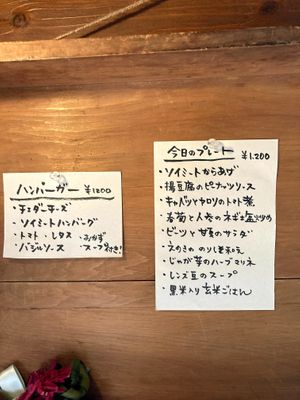 ハンバーガー ¥1200
・チェダーチーズ
・ソイミートハンバーグ
・トマト・レタス
・バジルソース
おかず
スープ付き!
今日のプレート ¥1,200
・ソイミートからあげ
・揚豆腐のピーナッツソース
・キャベツと のトマト煮
・ と人参の
・ビーツと甘夏のサラダ
・えのきののり し和え
・じゃが芋のハーブマリネ
・レンズ豆のスープ
・黒米入り玄米ごはん